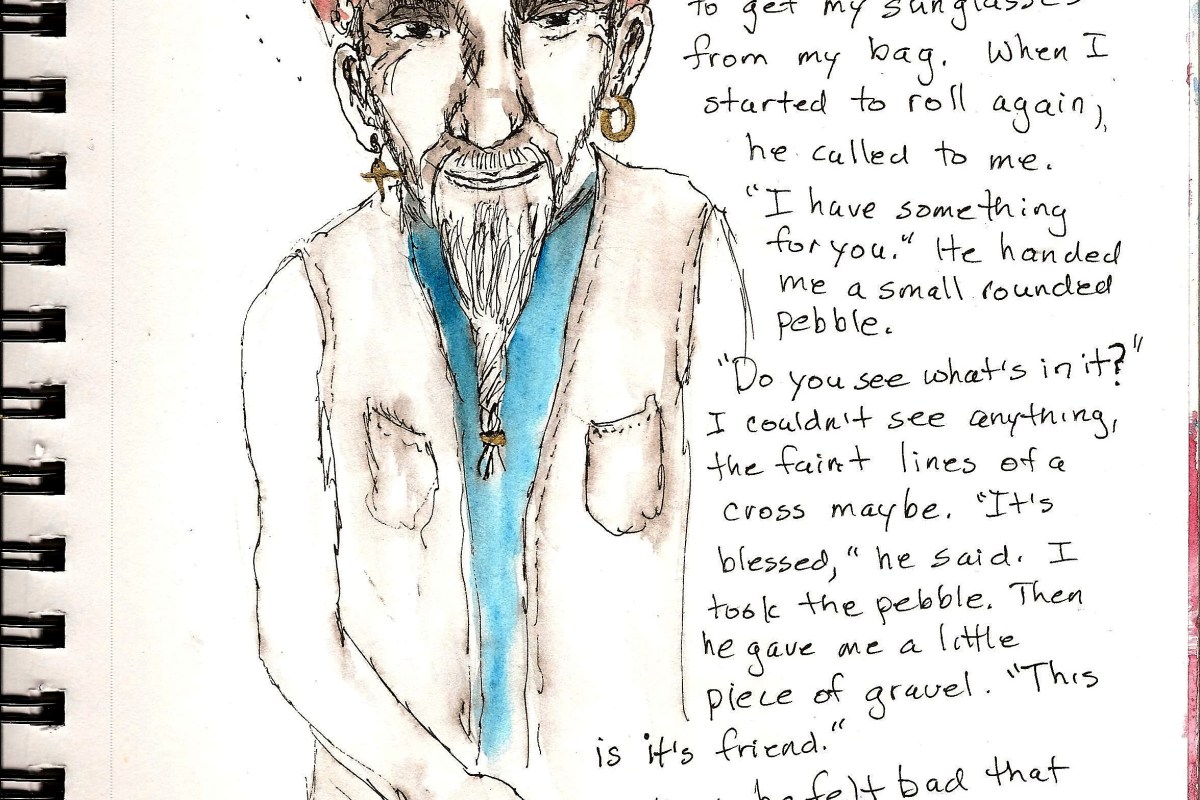 to get my sunglasses
from my bag. When I
started to roll again,
he called to me.
"I have something
for you." He handed
me a small rounded
pebble.
"Do you see what's in it?"
I couldn't see anything,
the faint lines of a
cross maybe. "It's
blessed," he said. I
took the pebble. Then
he gave me a little
piece of gravel. "This
is it's friend."
he felt bad that